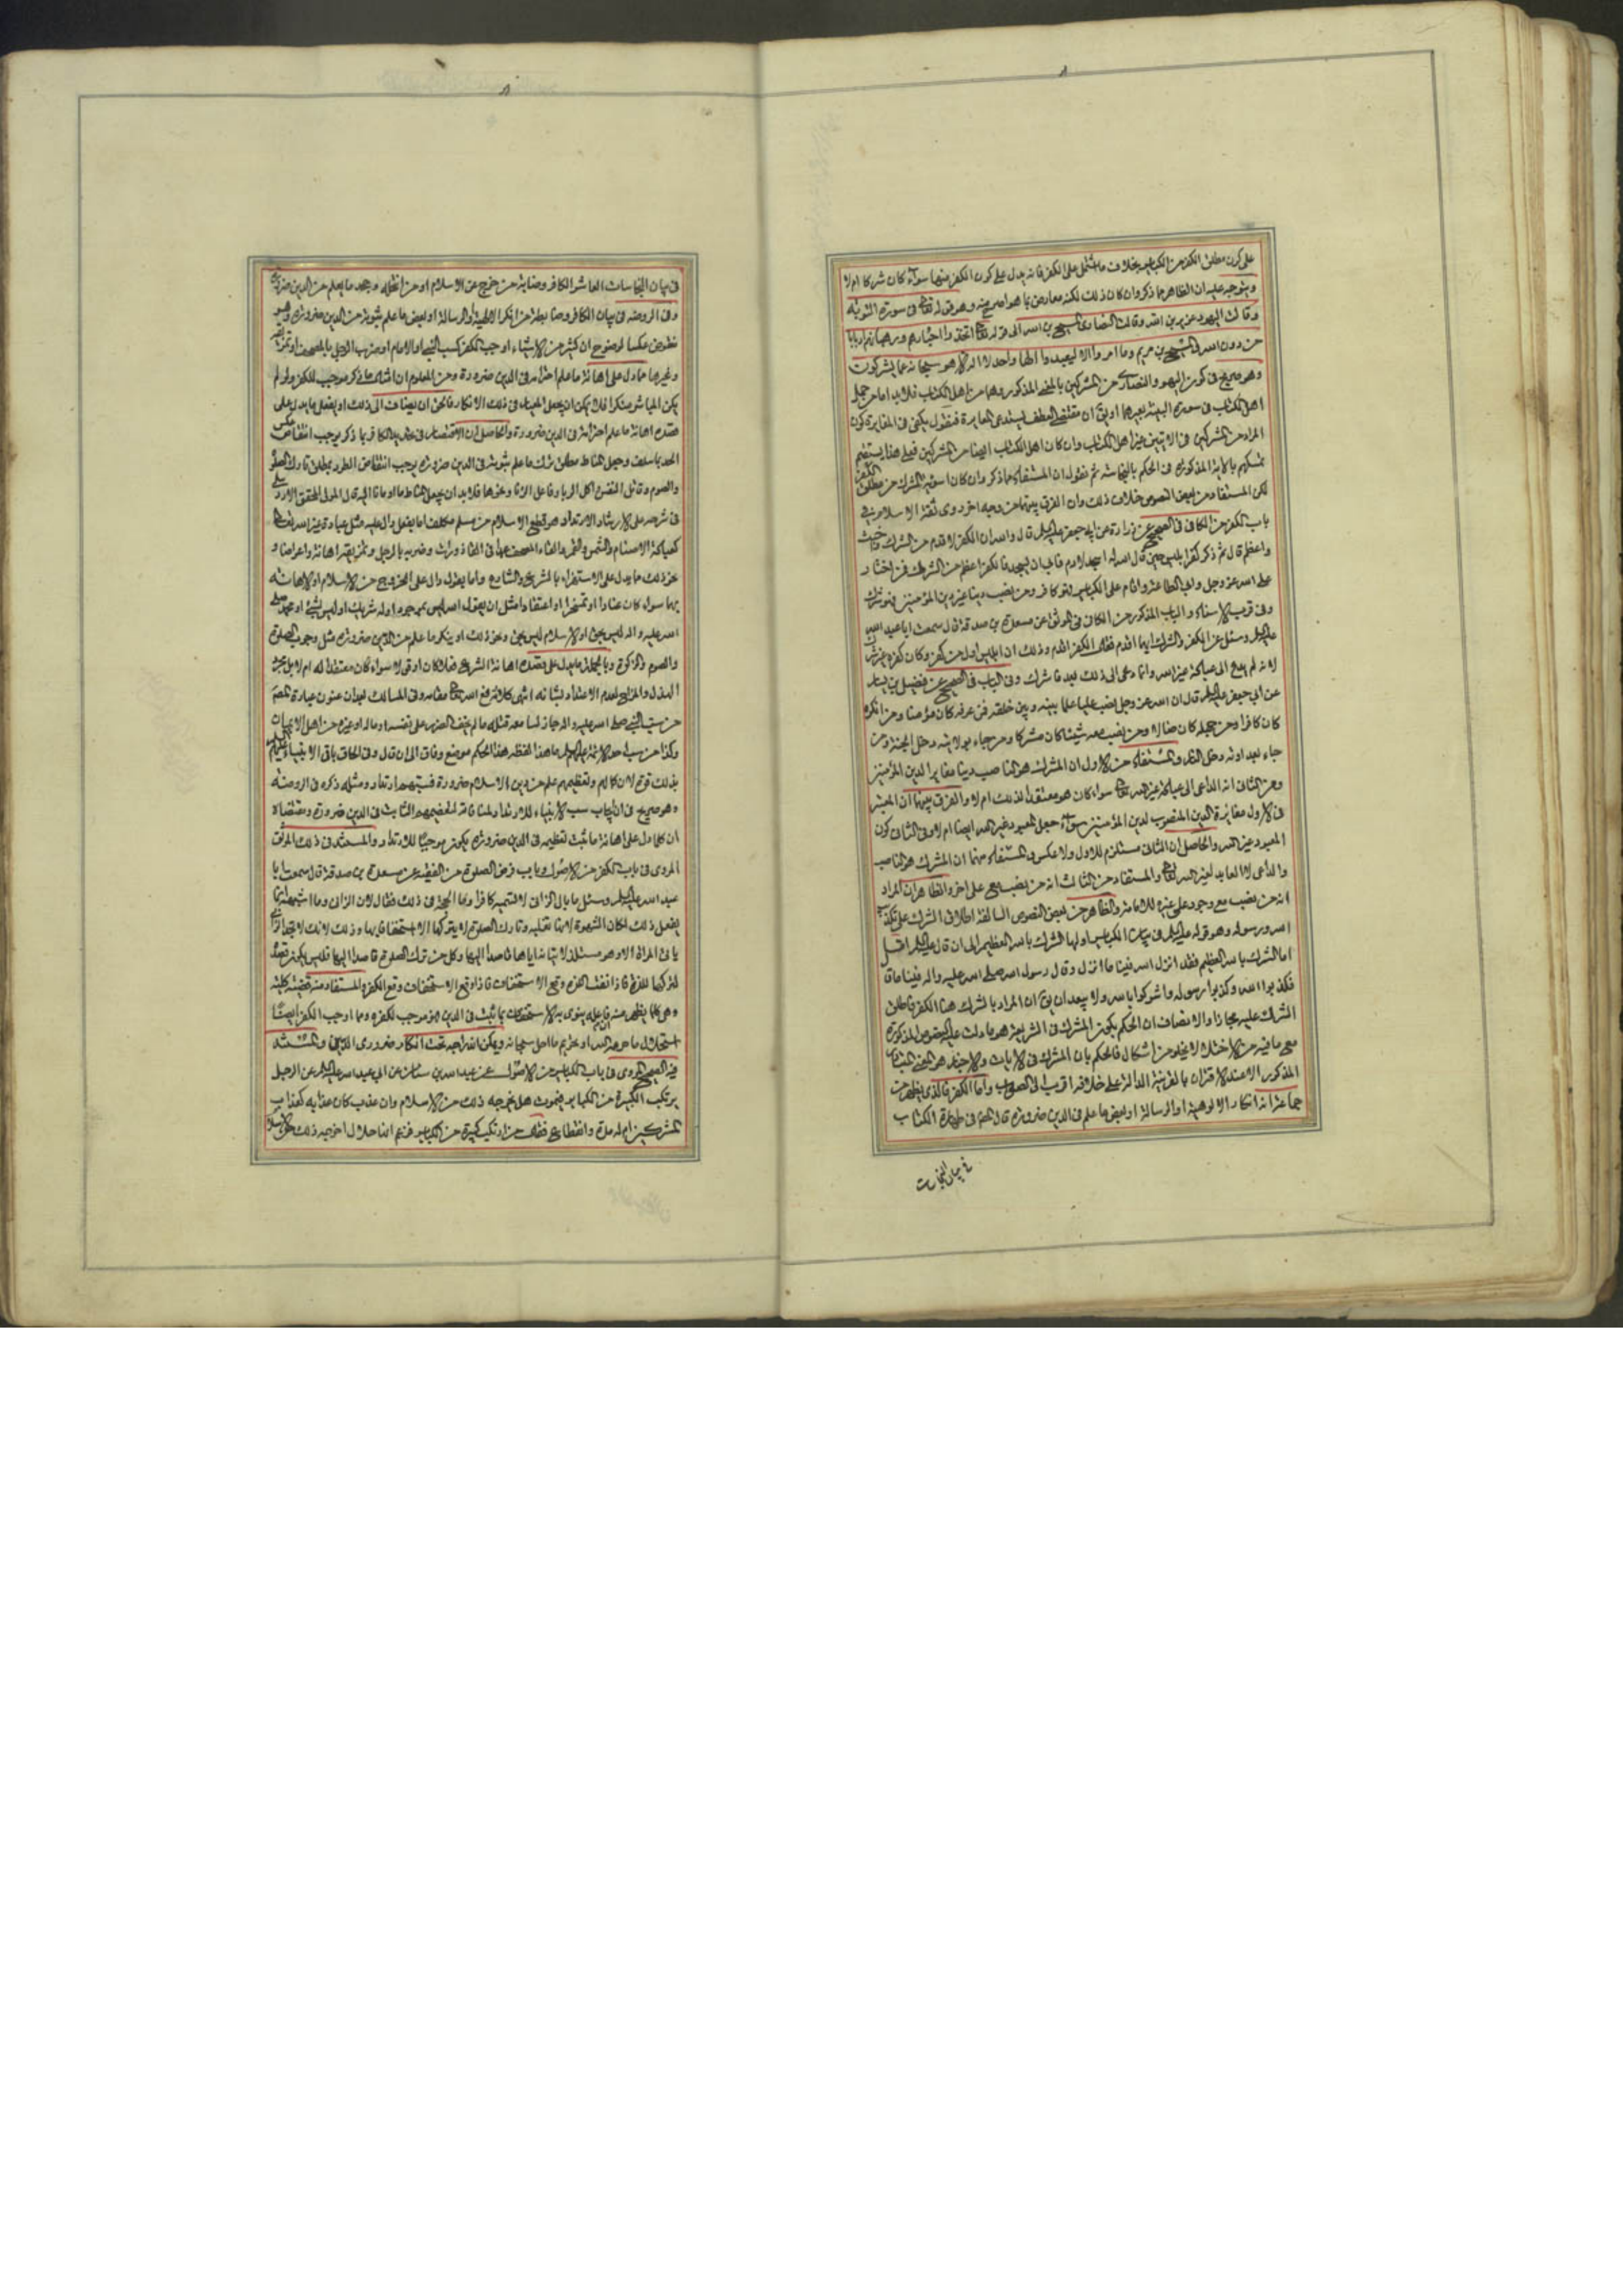 على كون مطلق الكفر من الكبائر بخلاف ما اشتمل على الكفر فانه يدل على كون الكفر منها سواء كان شركا ام لا
ويتوجه عليه ان الظاهر ما ذكر وان كان ذلك لكنه معارض بما هو اصرح منه وهو قوله تعالى فى سورة التوبة
وقالت اليهود عزير بن الله وقالت النصارى المسيح بن الله الى قوله تعالى اتخذوا احبارهم ورهبانهم اربابا
من دون الله والمسيح بن مريم وما امروا الا ليعبدوا الها واحدا لا اله الا هو سبحانه عما يشركون
وهو صريح فى كون اليهود والنصارى من المشركين بالمعنى المذكور وهما من اهل الكتاب فلا بد اما من حمل
اهل الكتاب فى سورة البينة بغيرهما او يق ان مقتضى العطف يستدعى المغايرة فنقول يكفى فى المغايرة كون
المراد من المشركين فى الايتين غير اهل الكتاب وان كان اهل الكتاب ايضا من المشركين فعلى هذا يستقيم
تمسكهم بالاية المذكورة فى الحكم بالنجاسة ثم نقول ان المستفاد مما ذكر وان كان المشرك من مطلق الكفر
لكن المستفاد من بعض النصوص خلاف ذلك وان الفرق بينهما من وجه اخر روى ثقة الاسلام فى
باب الكفر من الكافى فى الصحيح عن زرارة عن ابى جعفر عليه السلام قال والله ان الكفر لاقدم من الشرك واخبث
واعظم قال ثم ذكر كفر ابليس حين قال الله له اسجد لادم فابى ان يسجد فالكفر اعظم من الشرك فمن اختار
على الله عز وجل وابى الطاعة واقام على الكبائر فهو كافر ومن نصب دينا غير دين المؤمنين فهو مشرك
وفى قريب الاسناد والباب المذكور من الكافى فى الموثق عن مسعدة بن صدقة قال سمعت ابا عبد الله
عليه السلام وسئل عن الكفر والشرك ايهما اقدم فقال الكفر اقدم وذلك ان ابليس اول من كفر وكان كفره غير شرك
لانه لم يدع الى عبادة غير الله وانما دعى الى ذلك بعد فاشرك وفى الباب فى الصحيح عن فضيل بن يسار
عن ابى جعفر عليه السلام قال ان الله عز وجل نصب عليا علما بينه وبين خلقه فمن عرفه كان مؤمنا ومن انكره
كان كافرا ومن جهله كان ضالا ومن نصب معه شيئا كان مشركا ومن جاء بولايته دخل الجنة ومن
جاء بعداوته دخل النار والمستفاد من الاول ان المشرك هو الناصب دينا مغايرا لدين المؤمنين
ومن الثانى انه الداعى الى عبادة غير الله تعالى سواء كان هو معتقدا لذلك ام لا والفرق بينهما ان المعتبر
فى الاول مغايرة الدين المنصوب لدين المؤمنين سواء جعل المعبود غير الله ايضا ام لا وفى الثانى كون
المعبود غير الله والحاصل ان الثانى مستلزم للاول ولا عكس والمستفاد منهما ان المشرك هو الناصب
والداعى لا العابد لغير الله تعالى والمستفاد من الثالث انه من نصب مع على اخر والظاهر ان المراد
انه من نصب مع وجود على غيره للامامة والظاهر من بعض النصوص السالفة اطلاق الشرك على تكذيب
الله ورسوله وهو قوله عليه السلام فى بيان الكبائر اولها الشرك بالله العظيم الى ان قال عليه السلام
اما الشرك بالله العظيم فقد انزل الله فينا ما انزل وقال رسول الله صلى الله عليه واله فينا ما قال
فكذبوا الله وكذبوا رسوله واشركوا بالله ولا يبعد ان يق ان المراد بالشرك هنا الكفر فاطلق
الشرك عليه مجازا والانصاف ان الحكم بكون المشرك فى الشريعة هو ما دلت عليه النصوص المذكورة
مع ما فيه من الاختلاف لا يخلو من اشكال فالحكم بان المشرك فى الايات والاخبار هو المعنى المتبادر
المذكور الا عند الاقتران بالقرينة الدالة على خلافه اقرب الى الصواب واما الكفر فالذى يظهر من
جماعة انه انكار الالوهية او الرسالة او بعض ما علم فى الدين ضرورة قال فى طهارة الكتاب
فى بيان النجاسات
فى بيان النجاسات العاشر الكافر وضابطه من خرج عن الاسلام او من انتحله وجحد ما يعلم من الدين ضرورة
وفى الروضه فى بيان الكافر وضابطه من انكر الالهية او الرسالة او بعض ما علم ثبوته من الدين ضرورة وهو
منقوض عكسا لوضوح ان كثير من الاشياء اوجب الكفر كسب النبى او الامام او ضرب الرجل بالمصحف او تمزيقه
وغيرها مما دل على اهانة ما علم احترامه فى الدين ضرورة ومن المعلوم ان امثال ما ذكر موجب للكفر ولو لم
يكن المباشر منكرا فلا يمكن ان يجعل المناط فى ذلك الانكار فالحق ان يضاف الى ذلك او يفعل ما يدل على
قصده اهانة ما علم احترامه فى الدين ضرورة والحاصل ان الاقتصار فى الكافر بما ذكر يوجب انتقاض عكس
الحد بما سلف وجعل المناط مطلق ترك ما علم ثبوته فى الدين ضرورة يوجب انتقاض الطرد بمطلق تارك الصلوة
والصوم وقاتل النفس واكل الربا وفاعل الزنا ونحوها فلا بد ان يجعل المناط ما اومانا اليه قال المولى المحقق الاردبيلى
فى شرحه على الارشاد الارتداد هو قطع الاسلام من مسلم مكلف اما بفعل دال عليه مثل عبادة غير الله تعالى
كعبادة الاصنام والشمس والقمر والقاء المصحف فى القاذورات وضربه بالرجل وتمزيقه اهانة واعراضا و
نحو ذلك مما يدل على الاستهزاء بالشرع والشارع واما بقول دال على الخروج من الاسلام او الاهانة
بهما سواء كان عنادا او تمسخرا او اعتقادا مثل ان يقول الله ليس بموجود او له شريك او ليس بشئ او محمد صلى
الله عليه واله ليس بنبى او الاسلام ليس بحق ونحو ذلك او ينكر ما علم من الدين ضرورة مثل وجوب الصلوة
والصوم والزكوة وبالجملة ما يدل على قصده اهانة الشرع فعلا كان او قولا سواء كان معتقدا له ام لا بل
الهذل والمزاح لعدم الاعتداد بشانه انتهى كلامه رفع الله تعالى مقامه وفى المسالك بعد ان عنون عبارة المصنف
من سب النبى صلى الله عليه واله جاز لسامعه قتله ما لم يخف الضرر على نفسه او ماله او غيره من اهل الايمان
وكذا من سب احد الائمة عليهم السلام ما هذا لفظه هذا الحكم موضع وفاق الى ان قال وفى الحاق باقى الانبياء عليهم السلام
بذلك قوة لان كمالهم وتعظيمهم علم من دين الاسلام ضرورة فسبهم ارتداد ومثله ذكره فى الروضة
وهو صريح فى ايجاب سب الانبياء للارتداد ولمنافاته لتعظيمهم الثابت فى الدين ضرورة ومقتضاه
ان كلما دل على اهانة ما ثبت تعظيمه فى الدين ضرورة يكون موجبا للارتداد والمستند فى ذلك الموثق
المروى فى باب الكفر من الاصول وباب فرض الصلوة من الفقيه عن مسعدة بن صدقة قال سمعت ابا
عبد الله عليه السلام وسئل ما بال الزانى لا تسميه كافرا وما الحجة فى ذلك فقال لان الزانى وما اشبهه انما
يفعل ذلك لمكان الشهوة لانها تغلبه وتارك الصلوة لا يتركها الا استخفافا بها وذلك لانك لا تجد الزانى
ياتى المراة الا وهو مستلذ لاتيانه اياها قاصدا اليها وكل من ترك الصلوة قاصدا اليها فليس يكون قصده
لتركها اللذة فاذا نفيت اللذة وقع الاستخفاف فاذا وقع الاستخفاف وقع الكفر والمستفاد منه قضية كلية
وهى كلما يظهر من فاعله الاستخفاف بما ثبت فى الدين هو موجب لكفره ومما اوجب الكفر ايضا
استحلال ما حرمه الله او تحريم ما احل سبحانه ويمكن اندراجه تحت انكار ضرورى الدين والمستند
فيه الصحيح المروى فى باب الكبائر من الاصول عن عبد الله بن سنان عن ابى عبد الله عليه السلام عن الرجل
يرتكب الكبيرة من الكبائر فيموت هل يخرجه ذلك من الاسلام وان عذب كان عذابه كعذاب
المشركين ام له مدة وانقطاع فقال من ارتكب كبيرة من الكبائر فزعم انها حلال اخرجه ذلك من الاسلام